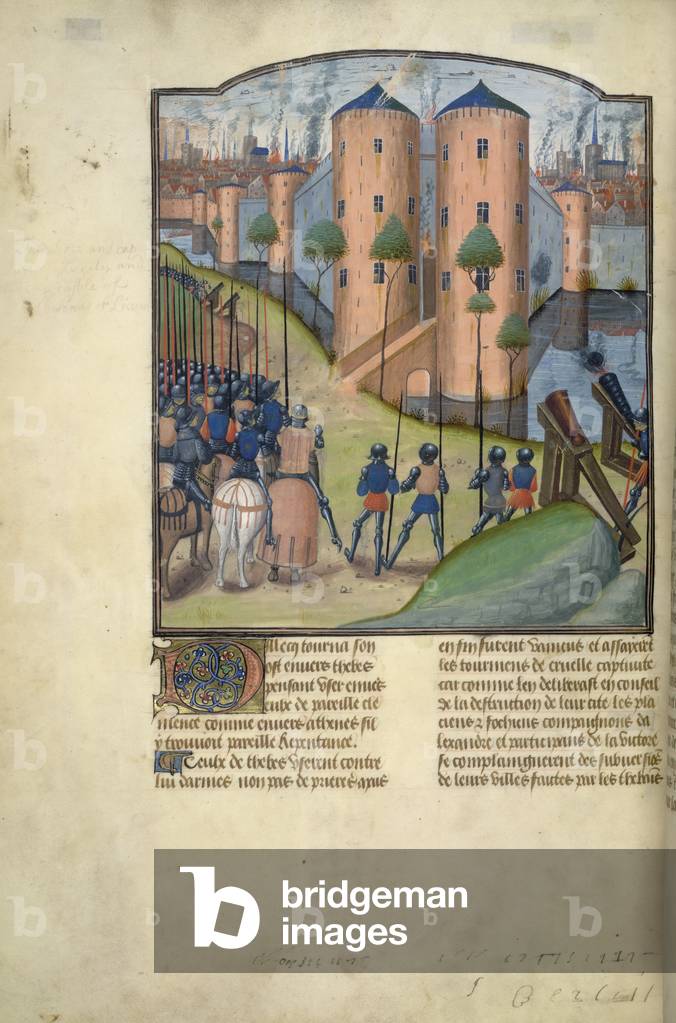 Illecq tourna son
ost enuers thebes
pensant vser enuers
ceulx de pareille cle
mence comme enuers athenes sil
y trouuoit pareille Repentance.
Ceulx de thebes vserent contre
lui darmes non pas de prieres ains
en fin furent vaincus et assayerent
les tourmens de cruelle captiuite
car comme len deliberast en conseil
de la destruction de leur cite les pla
ciens & fochiens compaignons da
lexandre et participans de la victore
se complaignerent des subuersions
de leurs villes faites par les thebains
bridgeman
images